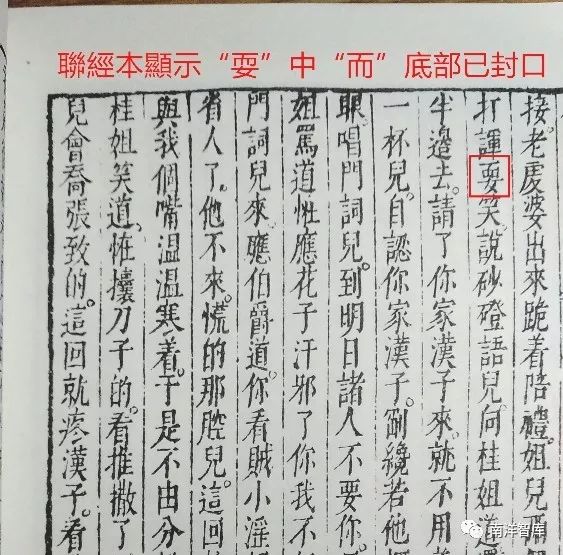 聯經本顯示“耍”中“而”底部已封口
接。老虔婆出來跪着陪禮。姐兒兩個
打諢耍笑。說砂磴語兒。向桂姐道還
半邊去。請了你家漢子來。就不用
一杯兒。自認你家漢子。剛纔若他
聯。唱門詞兒。到明日諸人不要你。
姐罵道恠應花子汗邪了你我不
門詞兒來。應伯爵道。你看賊小淫
省人了。他不來。慌的那腔兒。這回
與我個嘴溫溫寒着。于是不由分
桂姐笑道。恠攮刀子的。看推撒了
兒會喬張致的。這回就疼漢子。看
南洋智库